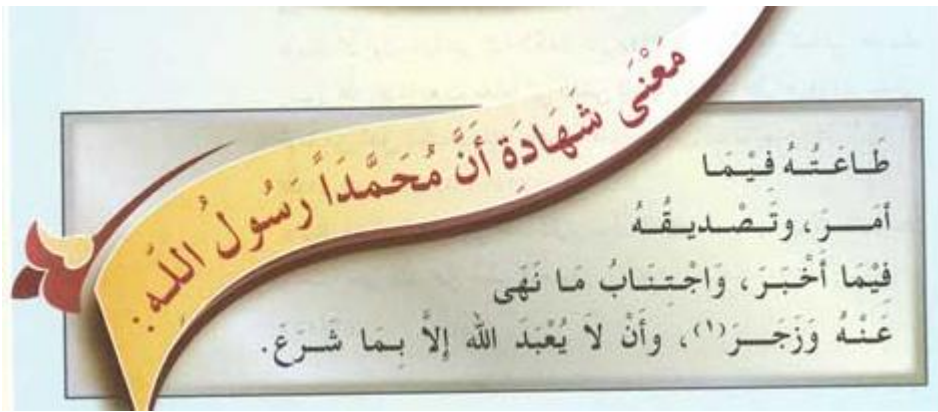 مَعْنَى شَهَادَةِ أَنَّ مُحَمَّدَاً رَسُولُ اللَّهِ:
طَاعَتُهُ فيْمَا
أمَرَ، وتَصْديقُهُ
فيْمَا أَخْبَرَ، وَاجْتِنَابُ مَا نَهَى
عَنْهُ وَزَجَرَ(١)، وأَنْ لَا يُعْبَدَ الله إلاَّ بِمَا شَرَعَ.